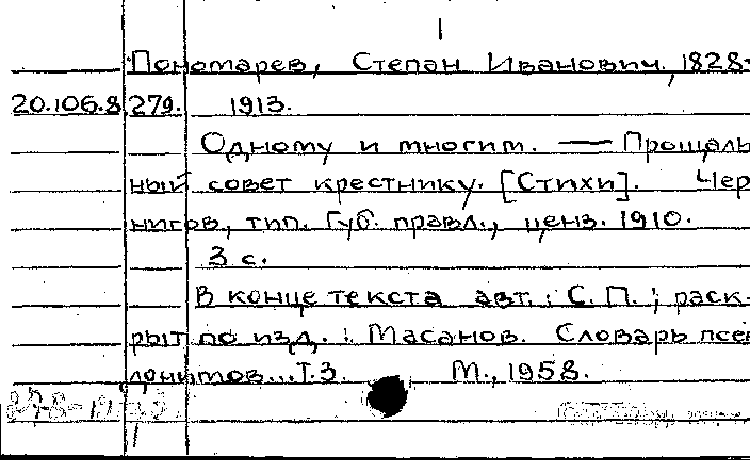 Пономарев, Степан Иванович, 1828-
20.106.8 279. 1913.
Одному и многим. — Прощаль
ный совет крестнику. [Стихи]. Чер
нигов, тип. Губ. правл., ценз. 1910.
3 с.
В конце текста авт.: С. П.; раск-
рыт по изд.: Масанов. Словарь псев
донимов...Т.3. М., 1958.